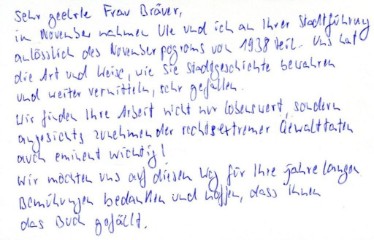 Sehr geehrte Frau Bräuer,
im November nahmen Ute und ich an Ihrer Stadtführung
anlässlich des Novemberpogroms von 1938 teil. Uns hat
die Art und Weise, wie Sie Stadtgeschichte bewahren
und weiter vermitteln, sehr gefallen.
Wir finden Ihre Arbeit nicht nur lobenswert, sondern
angesichts zunehmender rechtsextremer Gewalttaten
auch eminent wichtig!
Wir möchten uns auf diesem Weg für Ihre jahrelangen
Bemühungen bedanken und hoffen, dass Ihnen
das Buch gefällt.